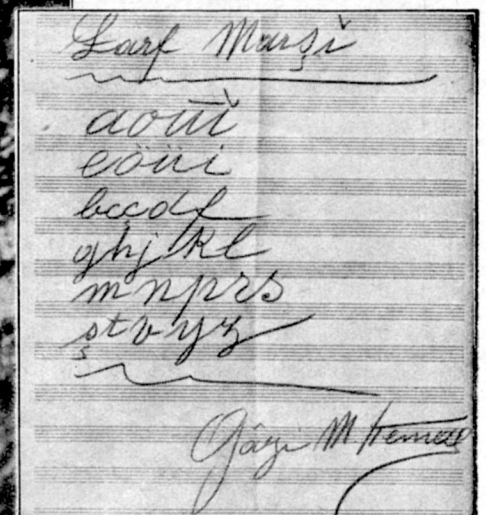 Harf Marşĭ
aouĭ
eöüi
bcçdf
ghjkl
mnprs
ştvyz
Gâzi M. Kemal